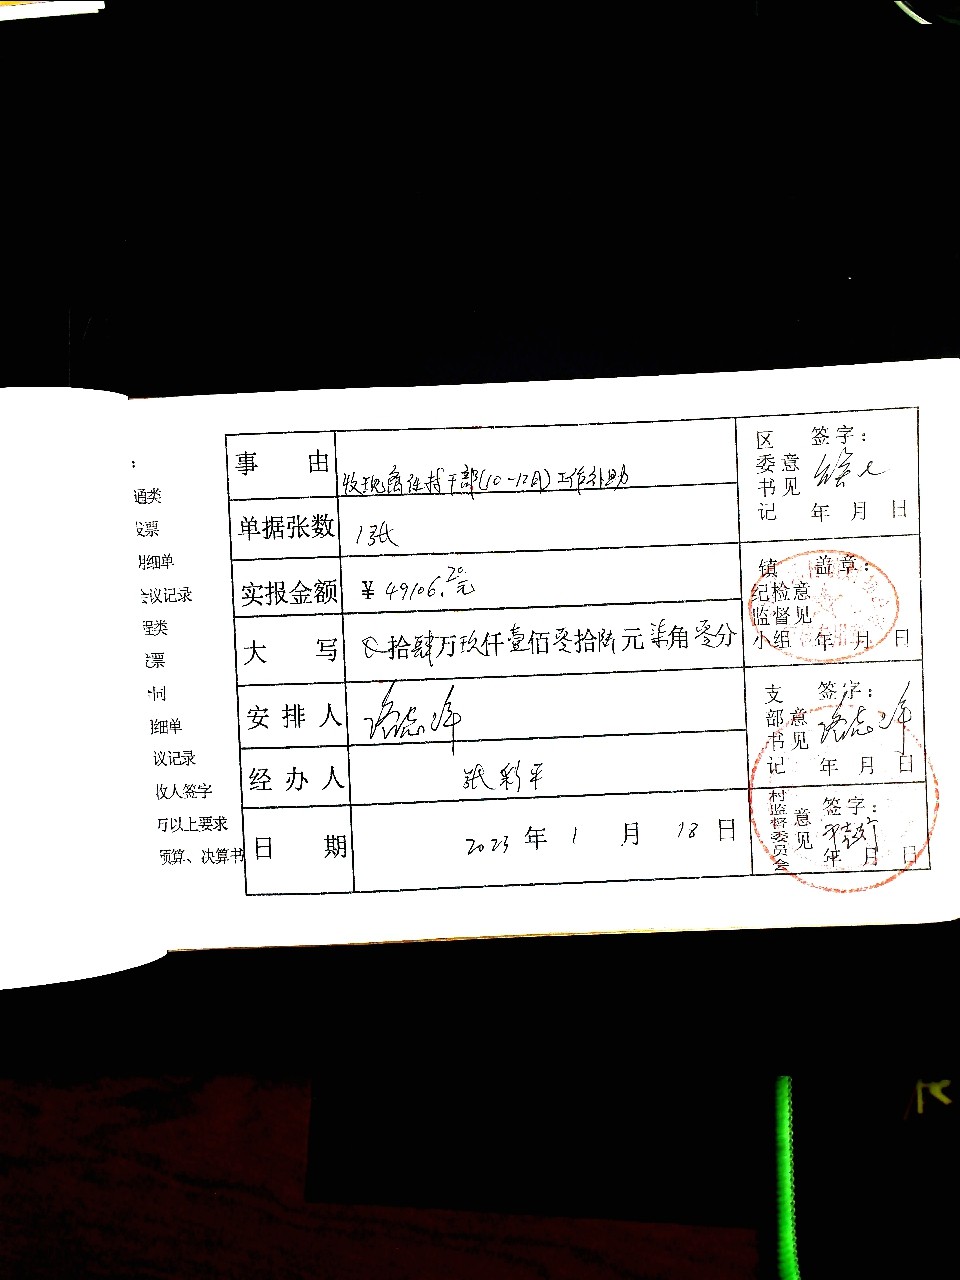 :
通类
发票
明细单
会议记录
程类
发票
合同
细单
议记录
收人签字
可以上要求
预算、决算书
事 由
收现离任村干部(10-12月)工作补助
单据张数
1张
实报金额
¥ 49106.70元
大 写
⊗拾肆万玖仟壹佰零拾陆元柒角零分
安 排 人
经 办 人
张彩平
日 期
2023 年 1 月 18 日
区委书记意见
签字:
年 月 日
镇纪检监督小组意见
盖章:
年 月 日
支部书记意见
签字:
年 月 日
村监督委员会意见
签字:
年 月 日